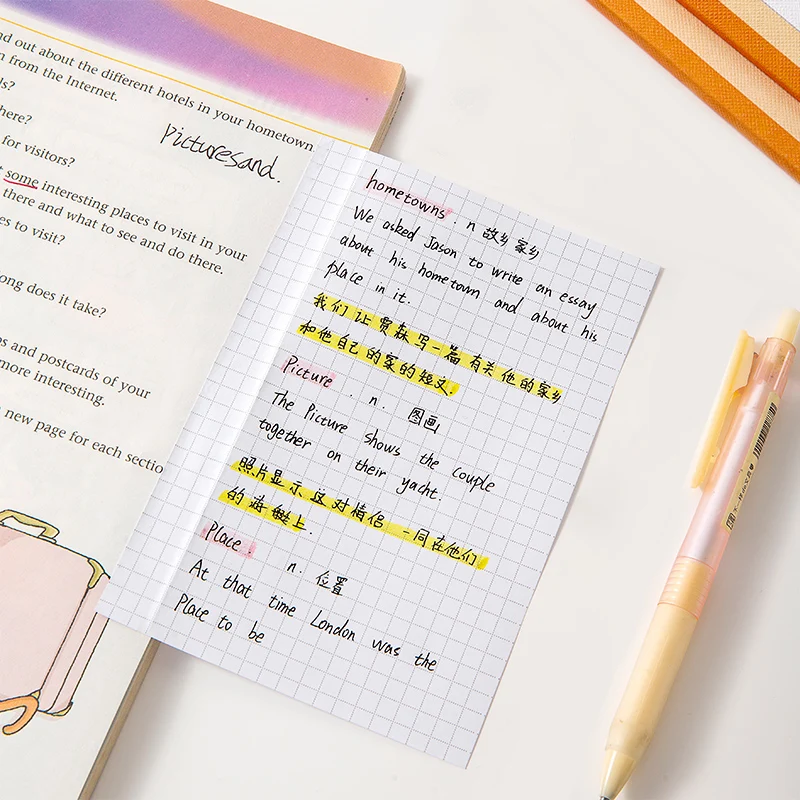 nd out about the different hotels in your hometown
n from the Internet.
ds?
here?
for visitors?
some interesting places to visit in your
there and what to see and do there.
es to visit?
ong does it take?
os and postcards of your
more interesting.
new page for each sectio
Picturesand.
hometowns. n 故乡家乡
We asked Jason to write an essay
about his hometown and about his
place in it.
我们让贾森写一篇有关他的家乡
和他自己的家的短文.
Picture. n. 图画
The Picture shows the couple
together on their yacht.
照片显示这对情侣一同在他们
的游艇上.
Place. n. 位置
At that time London was the
Place to be